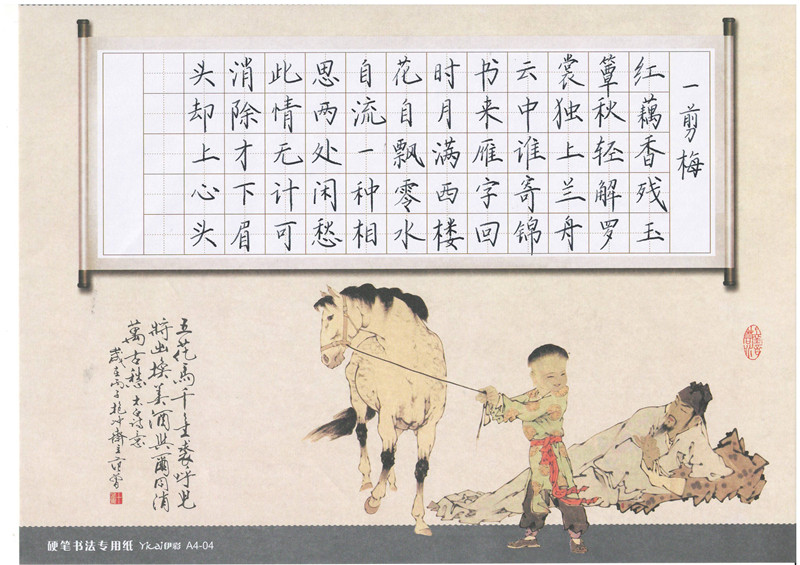 一剪梅
红藕香残玉
簟秋轻解罗
裳独上兰舟
云中谁寄锦
书来雁字回
时月满西楼
花自飘零水
自流一种相
思两处闲愁
此情无计可
消除才下眉
头却上心头
五花馬千金裘呼兒
将出换美酒與爾同消
萬古愁 太白诗意
歲在丙子抱冲齋主范曾
硬笔书法专用纸 Yicai伊彩 A4-04